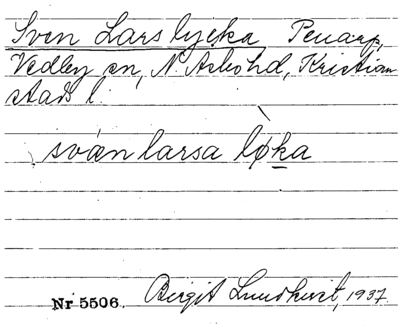 Sven Lars lycka Penarp,
Vedby sn, N. Åsbo hd, Kristian-
stads l.
svæn larsa lø̀ka
Nr 5506. Birgit Lundkvist, 1937.